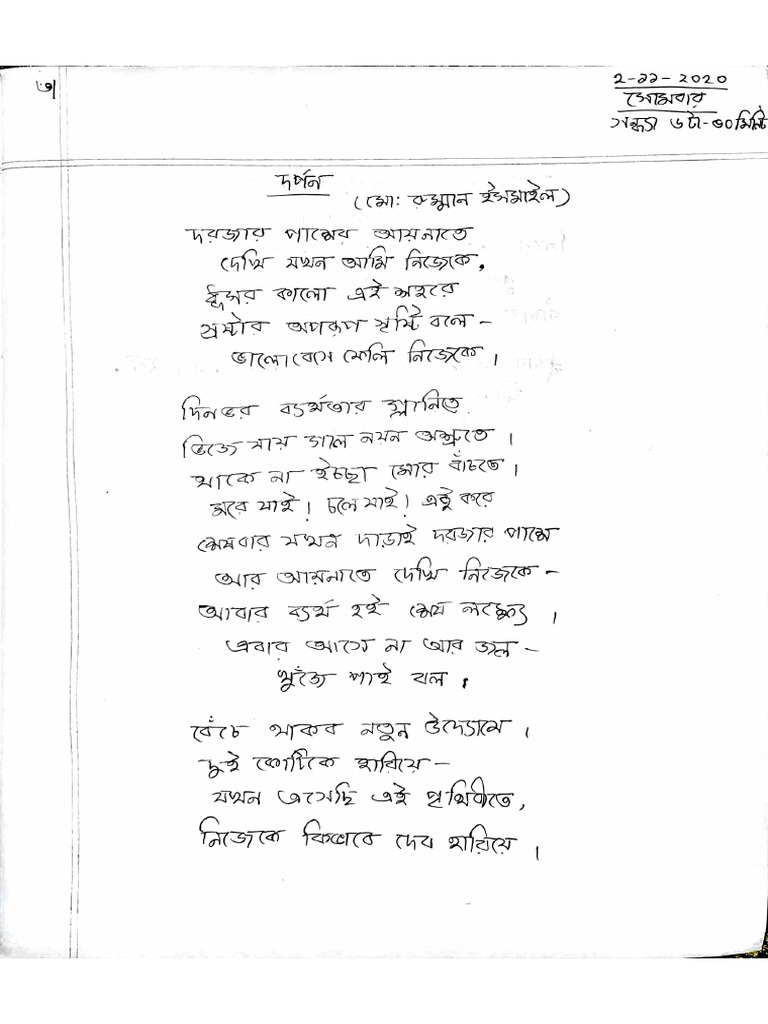 ৩।
২-১১-২০২০
সোমবার
সন্ধ্যা ৬টা-৩০মিনিট
দর্পন
(মো: রুম্মান ইসমাইল)
দরজার পাশের আয়নাতে
দেখি যখন আমি নিজেকে,
ধূসর কালো এই শহরে
স্রষ্টার অপরূপ সৃষ্টি বলে -
ভালোবেসে ফেলি নিজেকে।
দিনভর ব্যর্থতার গ্লানিতে
ভিজে যায় গাল নয়ন অশ্রুতে।
থাকে না ইচ্ছা মোর বাঁচতে।
মরে যাই! চলে যাই! এই করে
শেষবার যখন দাড়াই দরজার পাশে
আর আয়নাতে দেখি নিজেকে -
আবার ব্যর্থ হই শেষ লক্ষ্যে।
এবার আসে না আর জল -
খুঁজে পাই বল।
বেঁচে থাকব নতুন উদ্যোমে।
দুই কোটিকে হারিয়ে -
যখন এসেছি এই পৃথিবীতে,
নিজেকে কিভাবে দেব হারিয়ে।